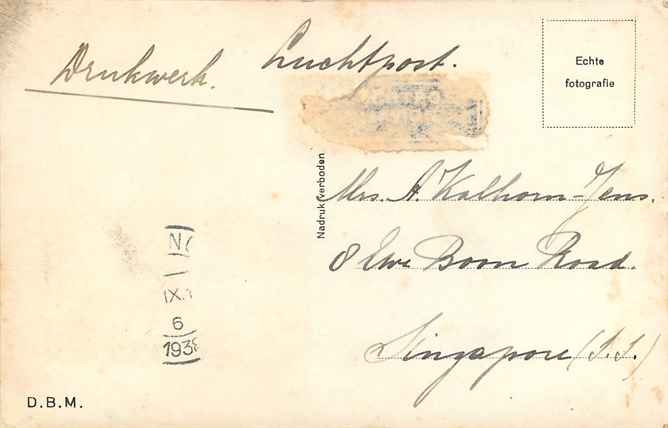 Drukwerk.
Luchtpost.
Echte
fotografie
Nadruk verboden
Mrs. A. Kalhorn-Jens.
8 Ewe Boon Road.
Singapore (S.S.)
IX.
6
1938
D.B.M.